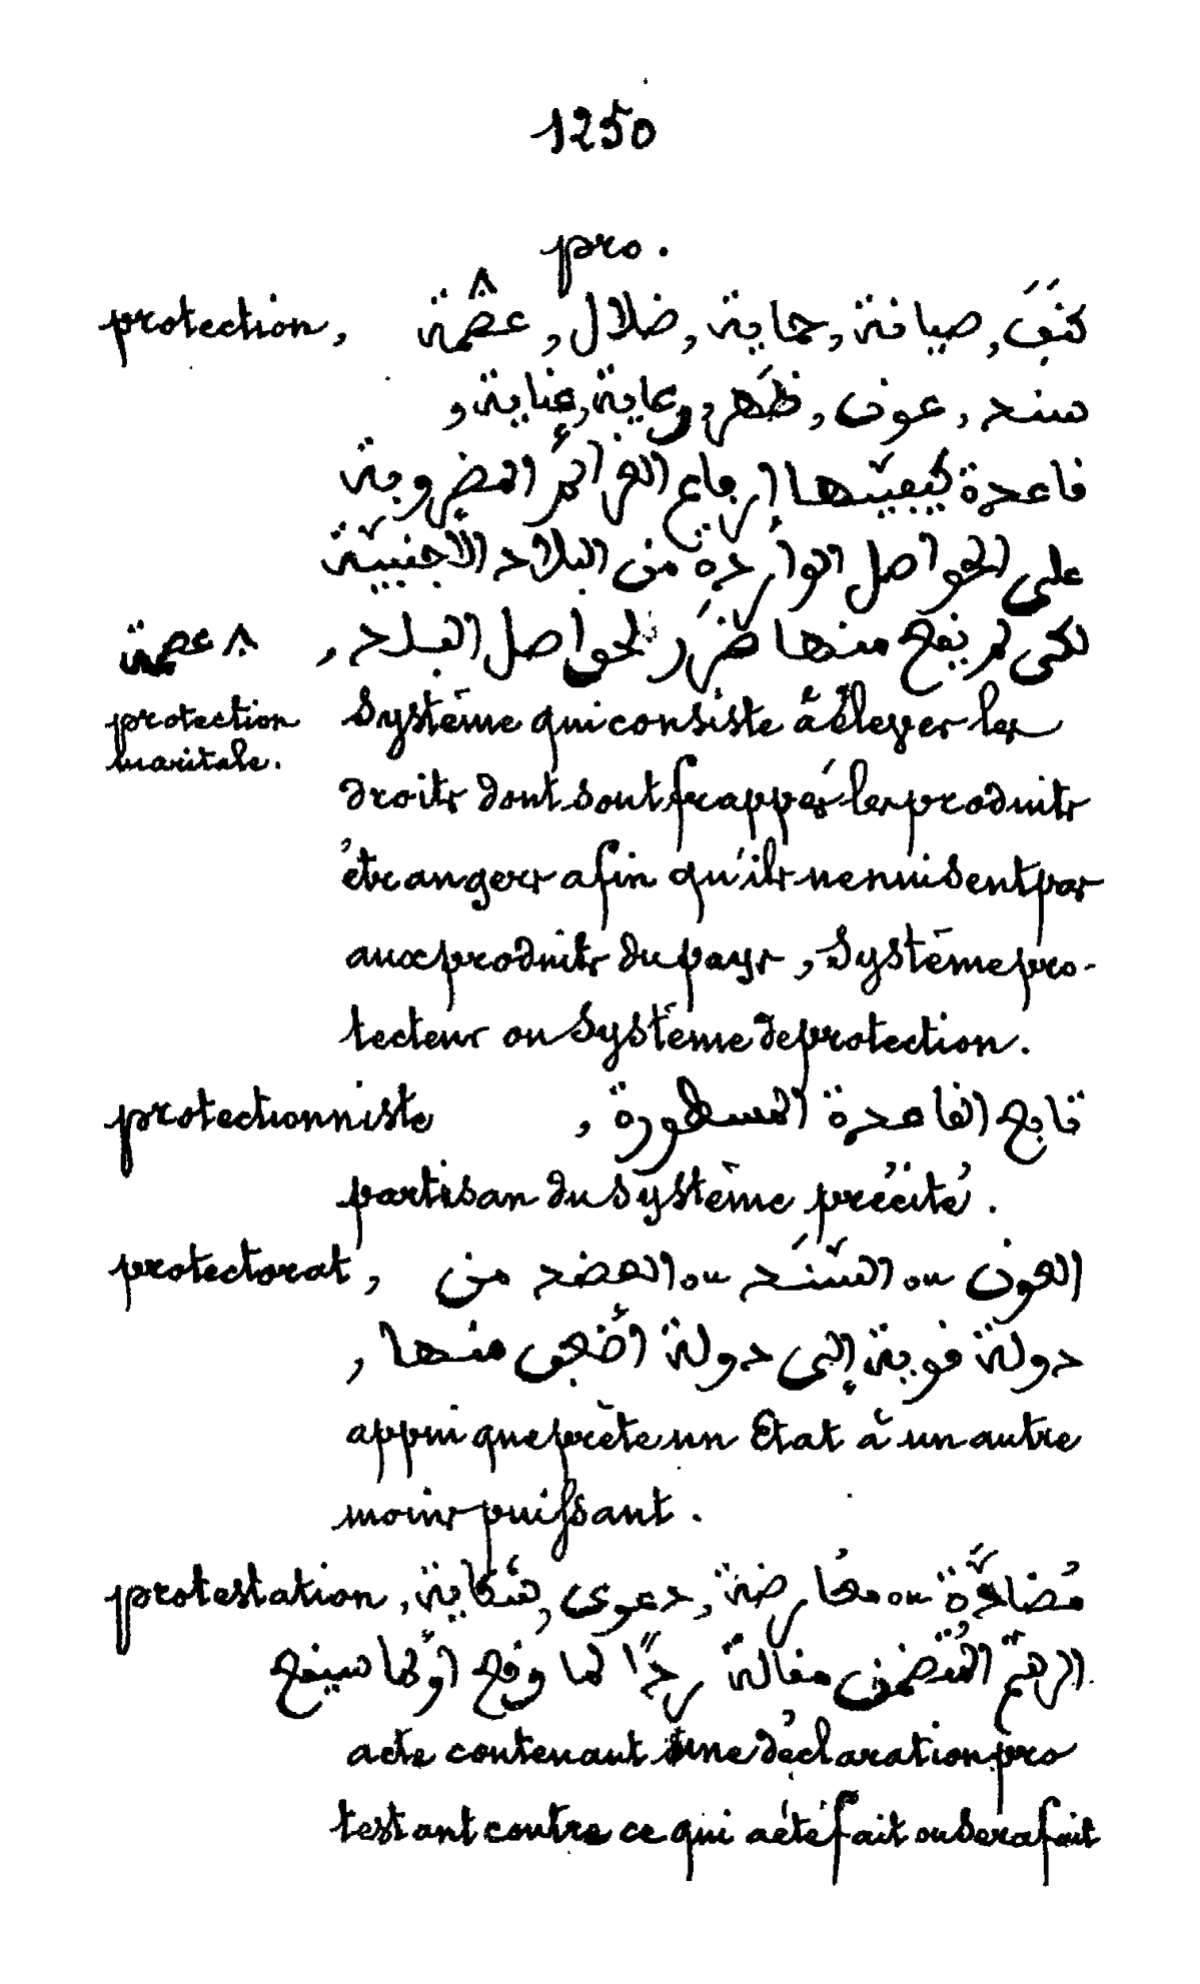 1250
pro.
protection, كنَف, صيانة, حماية, ضلال, عصمة
سند, عون, ظهر, رعاية, عناية,
قاعدة كيفيتها ارفاع الغرائم المضروبة
على الحواصل الواردة من البلاد الاجنبيّة
لكى لم يقع منها ضَرَر لحواصل البلاد,
8 عصمة
protection
maritale.
Système qui consiste à élever les
droits dont sont frappés les produits
étrangers afin qu'ils ne nuisent pas
aux produits du pays, Système pro-
tecteur ou Système de protection.
protectionniste تابع القاعدة المسطورة,
partisan du système précité.
protectorat, العون ou السّنَد ou العضد من
دولة قوية إلى دولة أضعف منها,
appui que prête un Etat à un autre
moins puissant.
protestation, مُضادّة ou معارضة, دعوى, شكاية,
الرسم المُتضمن مقالة ردًّا لما وقع أو لما سيقع
acte contenant une déclaration pro
testant contre ce qui a été fait ou sera fait